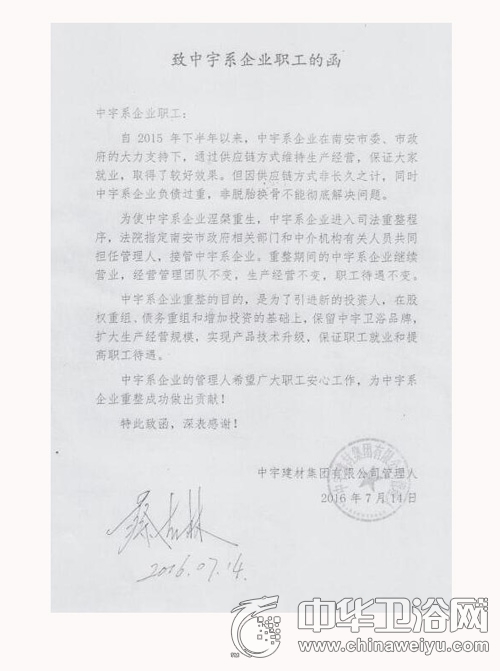 致中宇系企业职工的函
中宇系企业职工：
自 2015 年下半年以来，中宇系企业在南安市委、市政
府的大力支持下，通过供应链方式维持生产经营，保证大家
就业，取得了较好效果。但因供应链方式非长久之计，同时
中宇系企业负债过重，非脱胎换骨不能彻底解决问题。
为使中宇系企业涅槃重生，中宇系企业进入司法重整程
序，法院指定南安市政府相关部门和中介机构有关人员共同
担任管理人，接管中宇系企业。重整期间的中宇系企业继续
营业，经营管理团队不变，生产经营不变，职工待遇不变。
中宇系企业重整的目的，是为了引进新的投资人，在股
权重组、债务重组和增加投资的基础上，保留中宇卫浴品牌，
扩大生产经营规模，实现产品技术升级，保证职工就业和提
高职工待遇。
中宇系企业的管理人希望广大职工安心工作，为中宇系
企业重整成功做出贡献！
特此致函，深表感谢！
中宇建材集团有限公司管理人
2016 年 7 月 14 日
2016.07.14.
中华卫浴网
www.chinaweiyu.com